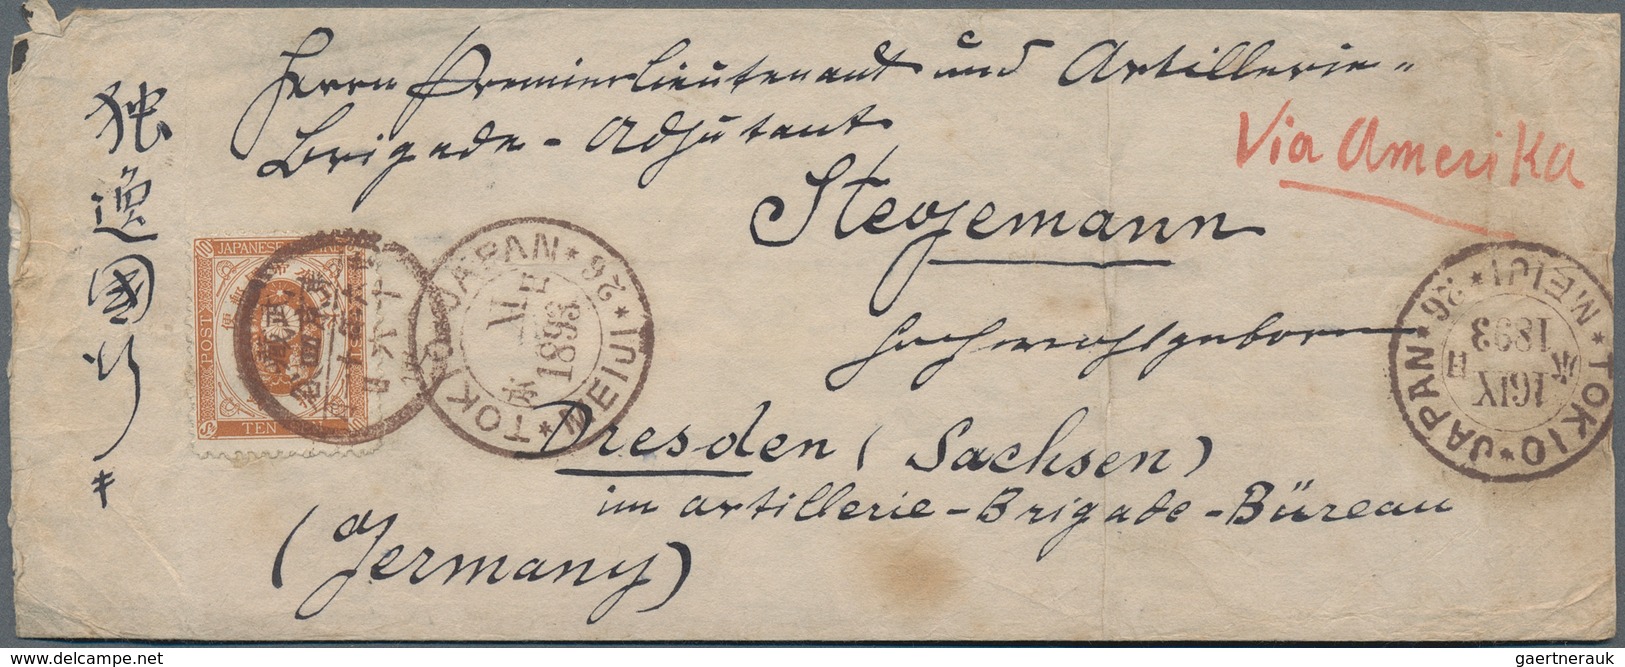 Herrn Premierlieutenant und Artillerie-
Brigade-Adjutant
Stegemann
Hochwohlgeboren
Dresden (Sachsen)
im Artillerie-Brigade-Büreau
(Germany)
Via Amerika
独逸國行
JAPANESE
POST
TEN
10
TOKIO * JAPAN * 26 * MEIJI *
1893
TOKIO * JAPAN * 26 * MEIJI *
16 IX
1893
delcampe.net
gaertnerauk